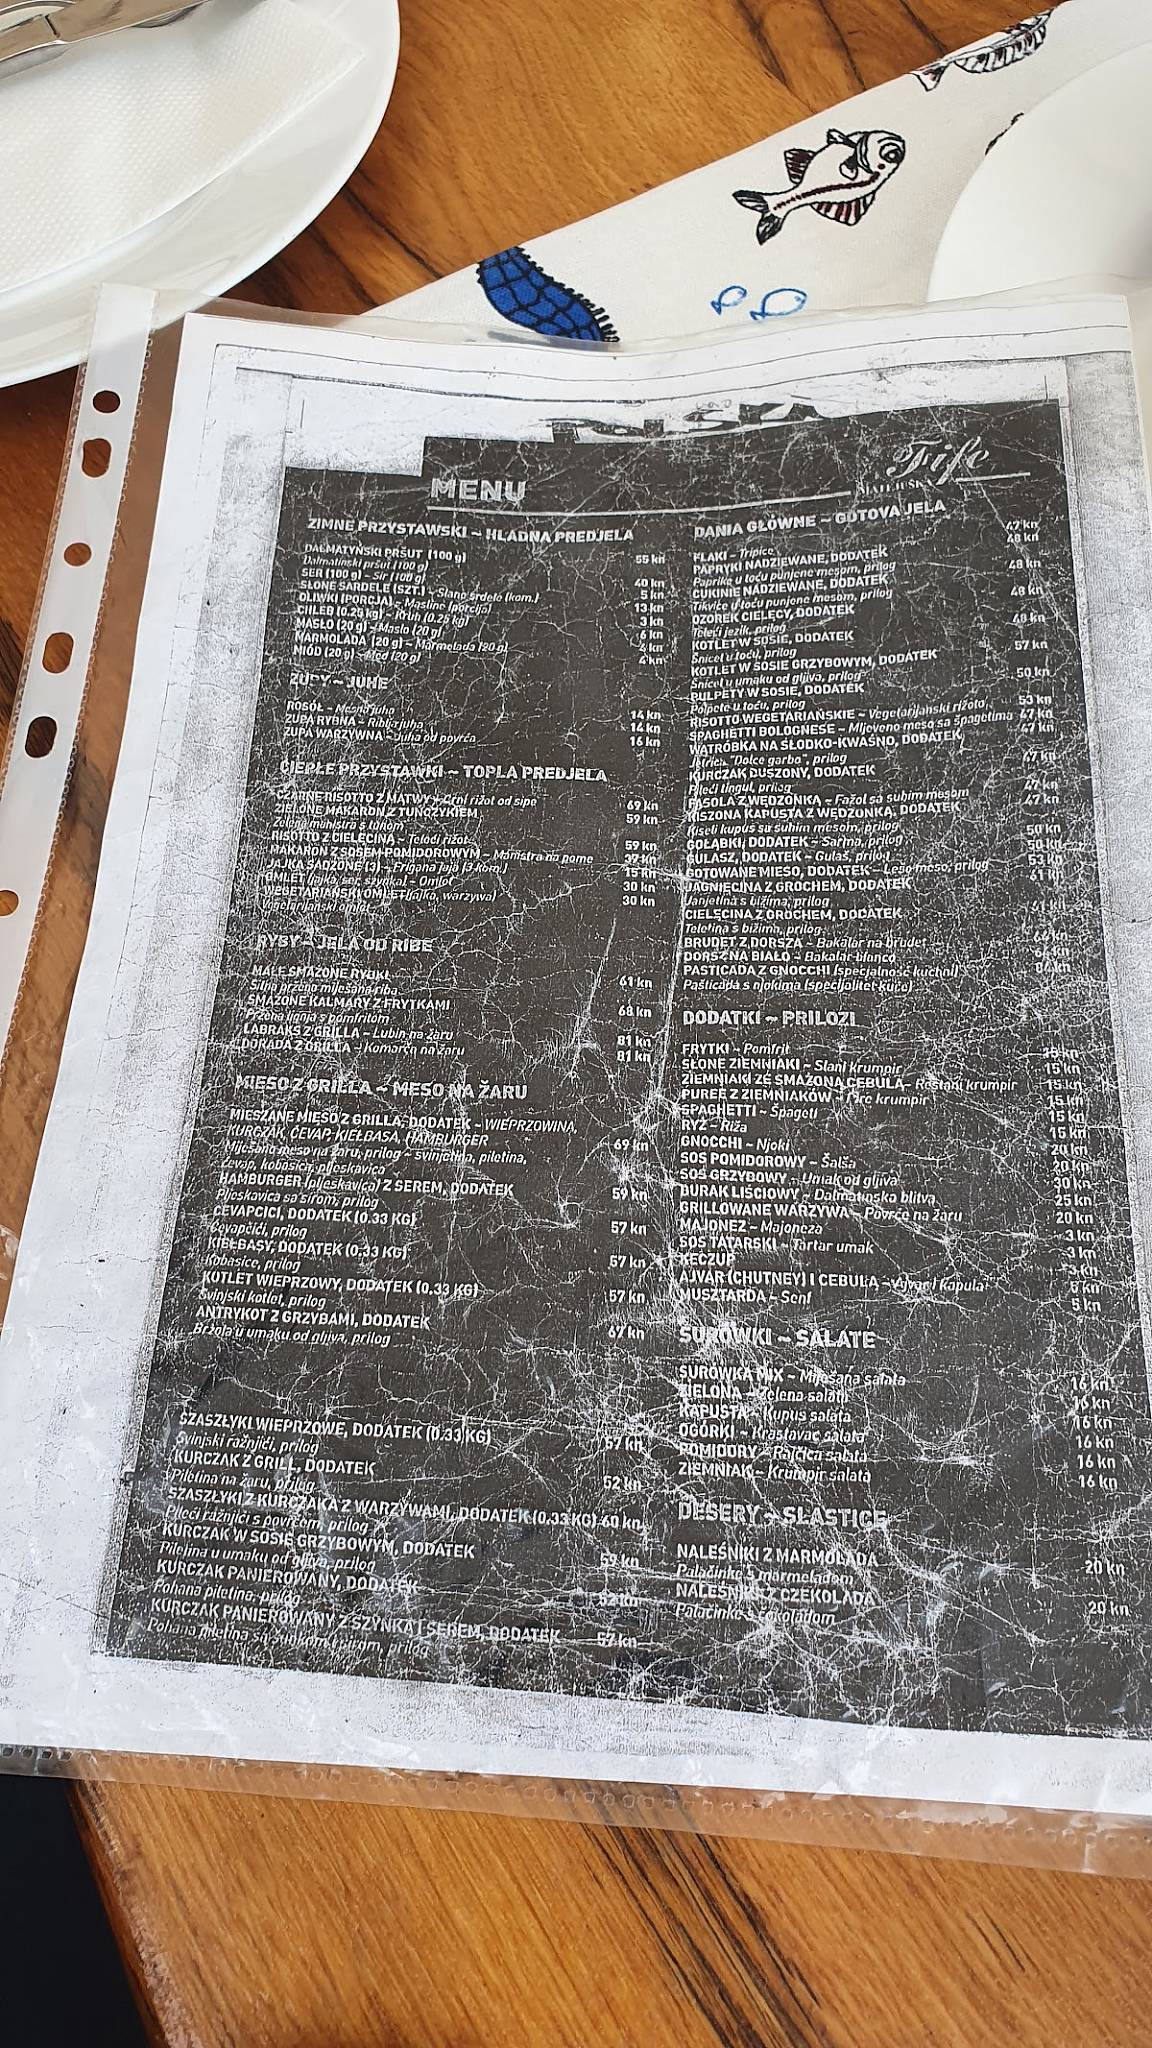 MENU
Fife
MATEJUŠKA
ZIMNE PRZYSTAWSKI ~ HLADNA PREDJELA
DALMATYŃSKI PRŠUT (100 g) 55 kn
Dalmatinski pršut (100 g)
SER (100 g) - Sir (100 g) 40 kn
SŁONE SARDELE (SZT.) - Slane srdele (kom.) 5 kn
OLIWKI (PORCJA) - Masline (porcija) 13 kn
CHLEB (0.25 kg) - Kruh (0.25 kg) 3 kn
MASŁO (20 g) - Maslo (20 g) 6 kn
MARMOLADA (20 g) - Marmelada (20 g) 4 kn
MIÓD (20 g) - Med (20 g) 4 kn
ZUPY ~ JUHE
ROSÓŁ - Mesna juha 14 kn
ZUPA RYBNA - Riblja juha 14 kn
ZUPA WARZYWNA - Juha od povrća 16 kn
CIEPŁE PRZYSTAWKI ~ TOPLA PREDJELA
CZARNE RISOTTO Z MATWY - Crni rižot od sipe 69 kn
ZIELONE MAKARON Z TUŃCZYKIEM 59 kn
Zelena maništra s tunom
RISOTTO Z CIELĘCINĄ - Teleći rižot 59 kn
MAKARON Z SOSEM POMIDOROWYM - Maništra na pome 37 kn
JAJKA SADZONE (3) - Prigana jaja (3 kom.) 15 kn
OMLET (jajka, ser, szynka) - Omlet 30 kn
WEGETARIAŃSKI OMLET (jajka, warzywa) 30 kn
Vegetarijanski omlet
RYBY ~ JELA OD RIBE
MAŁE SMAŻONE RYBKI 61 kn
Sitna pržena miješana riba
SMAŻONE KALMARY Z FRYTKAMI 68 kn
Pržena lignja s pomfritom
LABRAKS Z GRILLA - Lubin na žaru 81 kn
DORADA Z GRILLA - Komarča na žaru 81 kn
MIĘSO Z GRILLA ~ MESO NA ŽARU
MIESZANE MIĘSO Z GRILLA, DODATEK - WIEPRZOWINA,
KURCZAK, ČEVAP, KIEŁBASA, HAMBURGER 69 kn
Miješano meso na žaru, prilog - svinjetina, piletina,
čevap, kobasica, pljeskavica
HAMBURGER (pljeskavica) Z SEREM, DODATEK 59 kn
Pljeskavica sa sirom, prilog
ČEVAPCICI, DODATEK (0.33 KG) 57 kn
Čevapčići, prilog
KIEŁBASY, DODATEK (0.33 KG) 57 kn
Kobasice, prilog
KOTLET WIEPRZOWY, DODATEK (0.33 KG) 57 kn
Svinjski kotlet, prilog
ANTRYKOT Z GRZYBAMI, DODATEK 67 kn
Bržola u umaku od gljiva, prilog
SZASZŁYKI WIEPRZOWE, DODATEK (0.33 KG) 57 kn
Svinjski ražnjići, prilog
KURCZAK Z GRILL, DODATEK 52 kn
Piletina na žaru, prilog
SZASZŁYKI Z KURCZAKA Z WARZYWAMI, DODATEK (0.33 KG) 60 kn
Pileći ražnjići s povrćem, prilog
KURCZAK W SOSIE GRZYBOWYM, DODATEK 59 kn
Piletina u umaku od gljiva, prilog
KURCZAK PANIEROWANY, DODATEK 52 kn
Pohana piletina, prilog
KURCZAK PANIEROWANY Z SZYNKĄ I SEREM, DODATEK 57 kn
Pohana piletina sa šunkom i sirom, prilog
DANIA GŁÓWNE ~ GOTOVA JELA
FLAKI - Tripice 47 kn
PAPRYKI NADZIEWANE, DODATEK 48 kn
Paprike u toću punjene mesom, prilog
CUKINIE NADZIEWANE, DODATEK 48 kn
Tikvice u toću punjene mesom, prilog
OZOREK CIELĘCY, DODATEK 48 kn
Teleći jezik, prilog
KOTLET W SOSIE, DODATEK 48 kn
Šnicel u toću, prilog
KOTLET W SOSIE GRZYBOWYM, DODATEK 57 kn
Šnicel u umaku od gljiva, prilog
PULPETY W SOSIE, DODATEK 50 kn
Polpete u toću, prilog
RISOTTO WEGETARIAŃSKIE - Vegetarijanski rižoto, 53 kn
SPAGHETTI BOLOGNESE - Mljeveno meso sa špagetima 47 kn
WĄTRÓBKA NA SŁODKO-KWAŚNO, DODATEK 47 kn
Jetrica "Dolce garbo", prilog
KURCZAK DUSZONY, DODATEK 47 kn
Pileći tingul, prilog
FASOLA Z WĘDZONKĄ - Fažol sa suhim mesom 47 kn
KISZONA KAPUSTA Z WĘDZONKĄ, DODATEK 47 kn
Kiseli kupus sa suhim mesom, prilog
GOŁĄBKI, DODATEK - Sarma, prilog 50 kn
GULASZ, DODATEK - Gulaš, prilog 50 kn
GOTOWANE MIĘSO, DODATEK - Lešo meso, prilog 53 kn
JAGNIĘCINA Z GROCHEM, DODATEK 61 kn
Janjetina s bižima, prilog
CIELĘCINA Z GROCHEM, DODATEK 61 kn
Teletina s bižima, prilog
BRUDET Z DORSZA - Bakalar na brudet
DORSZ NA BIAŁO - Bakalar bianco
PASTICADA Z GNOCCHI (specjalność kuchni)
Pašticada s njokima (specijalitet kuće)
DODATKI ~ PRILOZI
FRYTKI - Pomfrit
SŁONE ZIEMNIAKI - Slani krumpir 15 kn
ZIEMNIAKI ZE SMAŻONĄ CEBULĄ - Restani krumpir 15 kn
PUREE Z ZIEMNIAKÓW - Pire krumpir 15 kn
SPAGHETTI - Špageti 15 kn
RYŻ - Riža 15 kn
GNOCCHI - Njoki 20 kn
SOS POMIDOROWY - Šalša 20 kn
SOS GRZYBOWY - Umak od gljiva 30 kn
BURAK LIŚCIOWY - Dalmatinska blitva 25 kn
GRILLOWANE WARZYWA - Povrće na žaru 20 kn
MAJONEZ - Majoneza 3 kn
SOS TATARSKI - Tartar umak 3 kn
KECZUP 3 kn
AJVAR (CHUTNEY) I CEBULA - Ajvar i kapula 6 kn
MUSZTARDA - Senf 5 kn
SURÓWKI ~ SALATE
SURÓWKA MIX - Miješana salata 16 kn
ZIELONA - Zelena salata 16 kn
KAPUSTA - Kupus salata 16 kn
OGÓRKI - Krastavac salata 16 kn
POMIDORY - Rajčica salata 16 kn
ZIEMNIAK - Krumpir salata 16 kn
DESERY ~ SLASTICE
NALEŚNIKI Z MARMOLADĄ 20 kn
Palačinke s marmeladom
NALEŚNIKI Z CZEKOLADĄ 20 kn
Palačinke s čokoladom